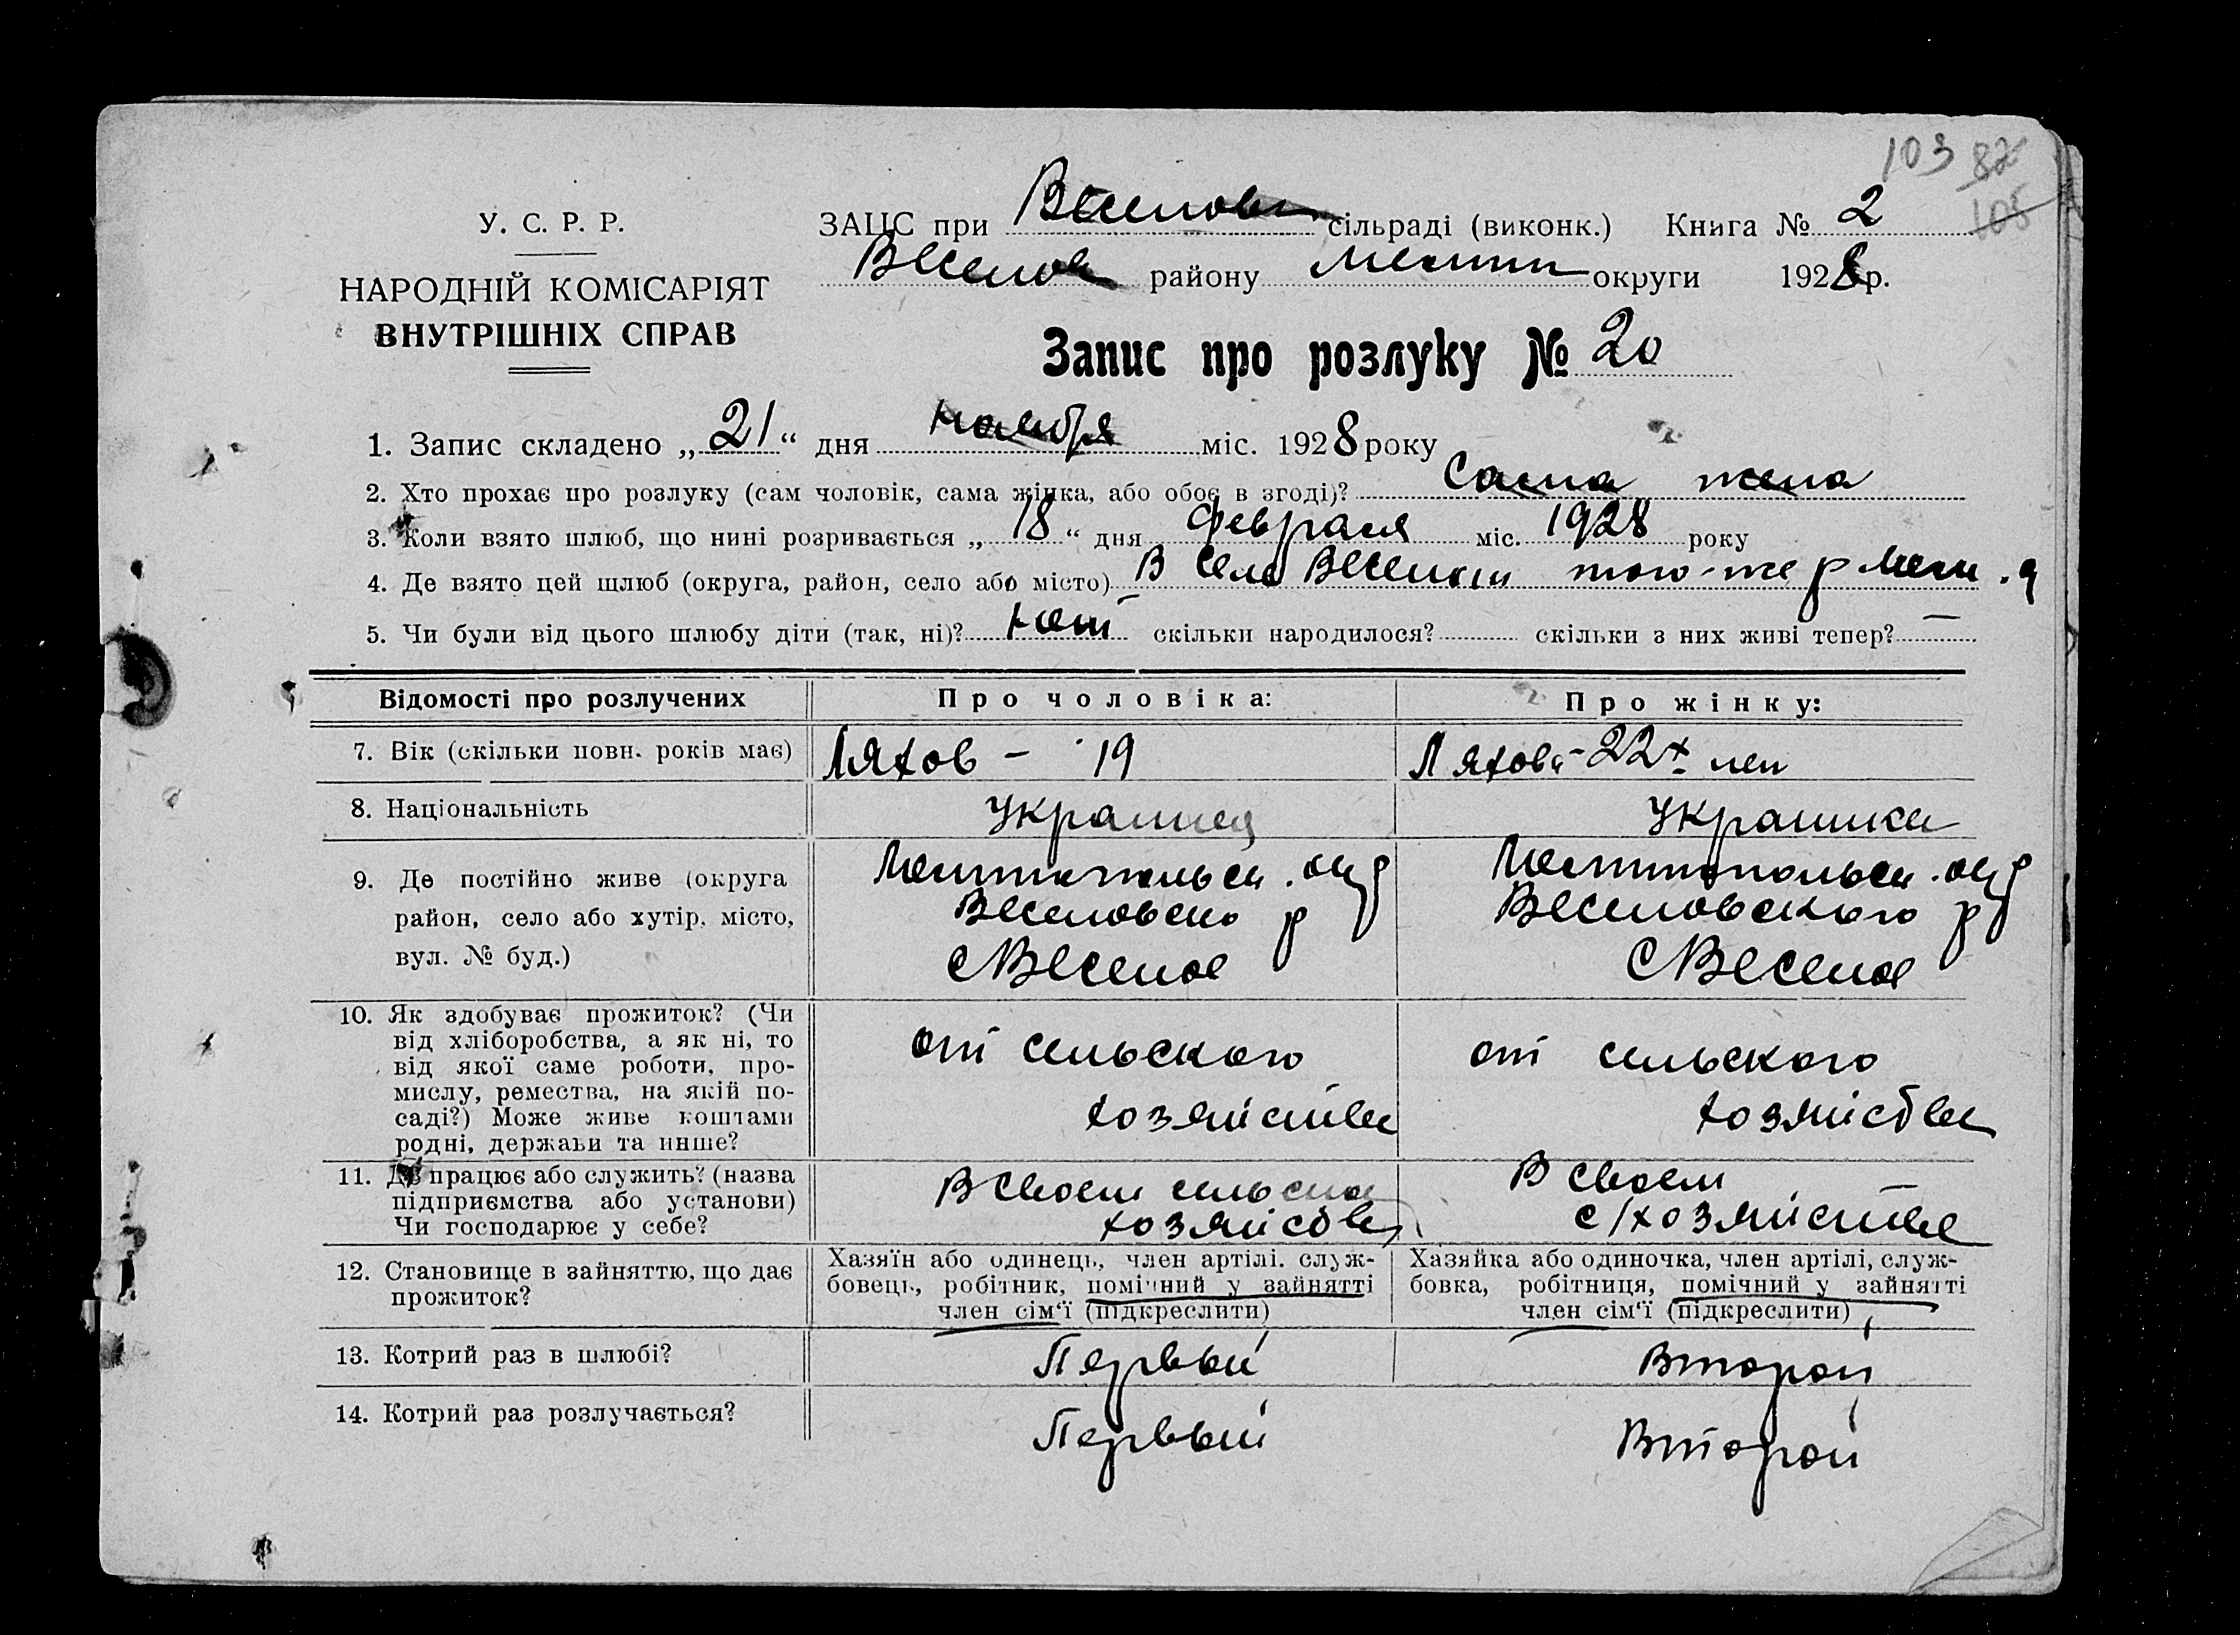 103 82
105
У. С. Р. Р.
НАРОДНІЙ КОМІСАРІЯТ
ВНУТРІШНІХ СПРАВ
ЗАЦС при Веселовс сільраді (виконк.) Книга № 2
Веселов району Мелит округи 1928 р.
Запис про розлуку № 20
1. Запис складено „21“ дня ноября міс. 1928 року
2. Хто прохає про розлуку (сам чоловік, сама жінка, або обоє в згоді)? Сама жена
3. Коли взято шлюб, що нині розривається „18“ дня февраля міс. 1928 року
4. Де взято цей шлюб (округа, район, село або місто) В Селе Веселом того-же р Мели.
5. Чи були від цього шлюбу діти (так, ні)? Нет скільки народилося? скільки з них живі тепер? —
Відомості про розлучених
Про чоловіка:
Про жінку:
7. Вік (скільки повн. років має)
Ляхов - 19
Ляхова - 22х лет
8. Національність
Украинец
Украинка
9. Де постійно живе (округа
район, село або хутір, місто,
вул. № буд.)
Мелитопольск. окр
Веселовско р
с Веселое
Мелитопольск. окр
Веселовского р
с Веселое
10. Як здобуває прожиток? (Чи
від хліборобства, а як ні, то
від якої саме роботи, про-
мислу, ремества, на якій по-
саді?) Може живе коштами
родні, держави та инше?
от сельского
хозяйства
от сельского
хозяйсва
11. Де працює або служить? (назва
підприємства або установи)
Чи господарює у себе?
В своем сельском
хозяйсве
В своем
с/хозяйстве
12. Становище в зайняттю, що дає
прожиток?
Хазяїн або одинець, член артілі, служ-
бовець, робітник, помічний у зайнятті
член сім'ї (підкреслити)
Хазяйка або одиночка, член артілі, служ-
бовка, робітниця, помічний у зайнятті
член сім'ї (підкреслити)
13. Котрий раз в шлюбі?
Первый
Второй
14. Котрий раз розлучається?
Первый
Второй